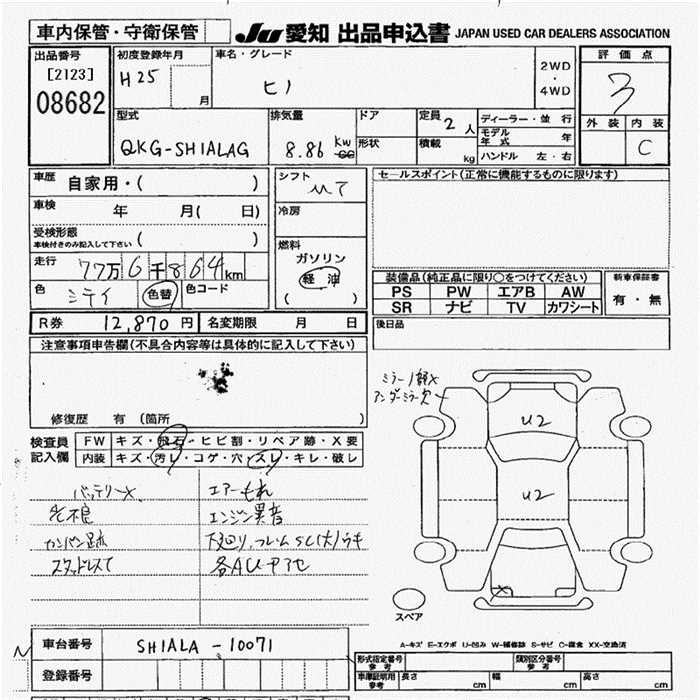 車内保管・守衛保管
JU 愛知 出品申込書 JAPAN USED CAR DEALERS ASSOCIATION
出品番号
[2123]
08682
初度登録年月
H25
月
車名・グレード
ヒノ
2WD
・
4WD
評価点
3
外装 内装
C
型式
QKG-SH1ALAG
排気量
8.86 KW
CC
ドア
形状
定員
2人
積載
kg
ディーラー・並行
モデル年式 年
ハンドル 左・右
車歴 自家用・( )
車検 年 月( 日)
受検形態
車検付きのみ記入して下さい ( )
走行 77万6千864km
色 色替 色コード
シフト
冷房
燃料
ガソリン
軽油
( )
セールスポイント(正常に機能するものに限ります)
装備品(純正品に限り○をつけてください)
PS PW エアB AW
SR ナビ TV カワシート
新車保証書
有・無
後日品
R券 12,870円 名変期限 月 日
注意事項申告欄(不具合内容等は具体的に記入して下さい)
修復歴 有(箇所 )
検査員記入欄
FW キズ・飛石・ヒビ割・リペア跡・X要
内装 キズ・汚レ・コゲ・穴・スレ・キレ・破レ
バッテリーX
エアーもれ
エンジン異音
スタッドレスT
U2
U2
X
スペア
A-キズ E-エクボ U-凹み W-補修跡 S-サビ C-腐食 XX-交換済
車台番号 SH1ALA-10071
登録番号
形式指定番号
参考
類別区分番号
参考
車庫証明用
参考
長さ cm 幅 cm 高さ cm